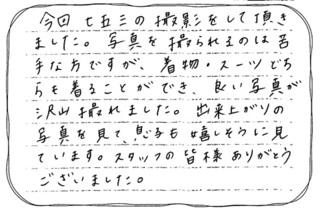 今回七五三の撮影をして頂き
ました。写真を撮られるのは苦
手な方ですが、着物・スーツどち
らも着ることができ、良い写真が
沢山撮れました。出来上がりの
写真を見て、息子も嬉しそうに見
ています。スタッフの皆様ありがとう
ございました。